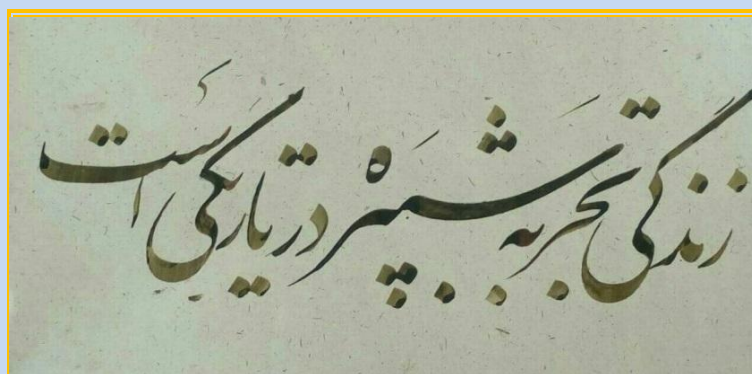 زندگی تجربه شب‌پره در تاریکی است